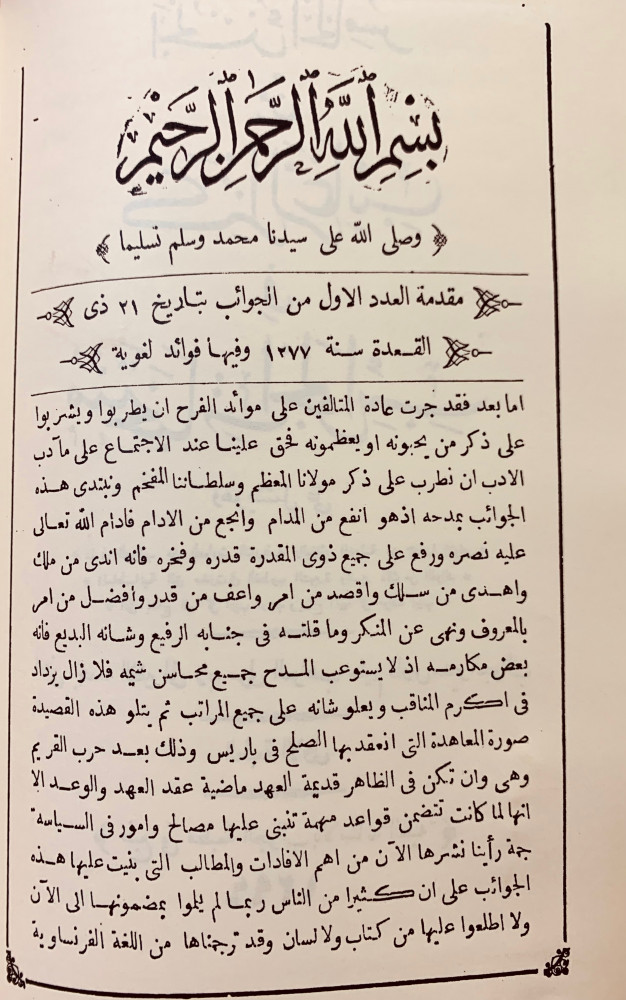 بسم الله الرحمن الرحيم
وصلى الله على سيدنا محمد وسلم تسليما
مقدمة العدد الاول من الجوائب بتاريخ ٢١ ذى
القعدة سنة ١٢٧٧ وفيها فوائد لغوية
اما بعد فقد جرت عادة المتالفين على موائد الفرح ان يطربوا ويشربوا
على ذكر من يحبونه او يعظمونه فحق علينا عند الاجتماع على مآدب
الادب ان نطرب على ذكر مولانا المعظم وسلطاننا المفخم ونبتدى هذه
الجوائب بمدحه اذ هو انفع من المدام وانجع من الادام فادام الله تعالى
عليه نصره ورفع على جميع ذوى المقدرة قدره وفخره فانه اندى من ملك
واهدى من سلك واقصد من امر واعف من قدر وأفضل من امر
بالمعروف ونهى عن المنكر وما قلته فى جنابه الرفيع وشانه البديع فانه
بعض مكارمه اذ لا يستوعب المدح جميع محاسن شيمه فلا زال يزداد
فى اكرم المناقب ويعلو شانه على جميع المراتب ثم يتلو هذه القصيدة
صورة المعاهدة التى انعقد بها الصلح فى باريس وذلك بعد حرب القريم
وهى وان تكن فى الظاهر قديمة العهد ماضية عقد العهد والوعد الا
انها لما كانت تتضمن قواعد مهمة تنبنى عليها مصالح وامور فى السياسة
جمة رأينا نشرها الآن من اهم الافادات والمطالب التى بنيت عليها هذه
الجوائب على ان كثيرا من الناس ربما لم يلموا بمضمونها الى الآن
ولا اطلعوا عليها من كتاب ولا لسان وقد ترجمناها من اللغة الفرنساوية